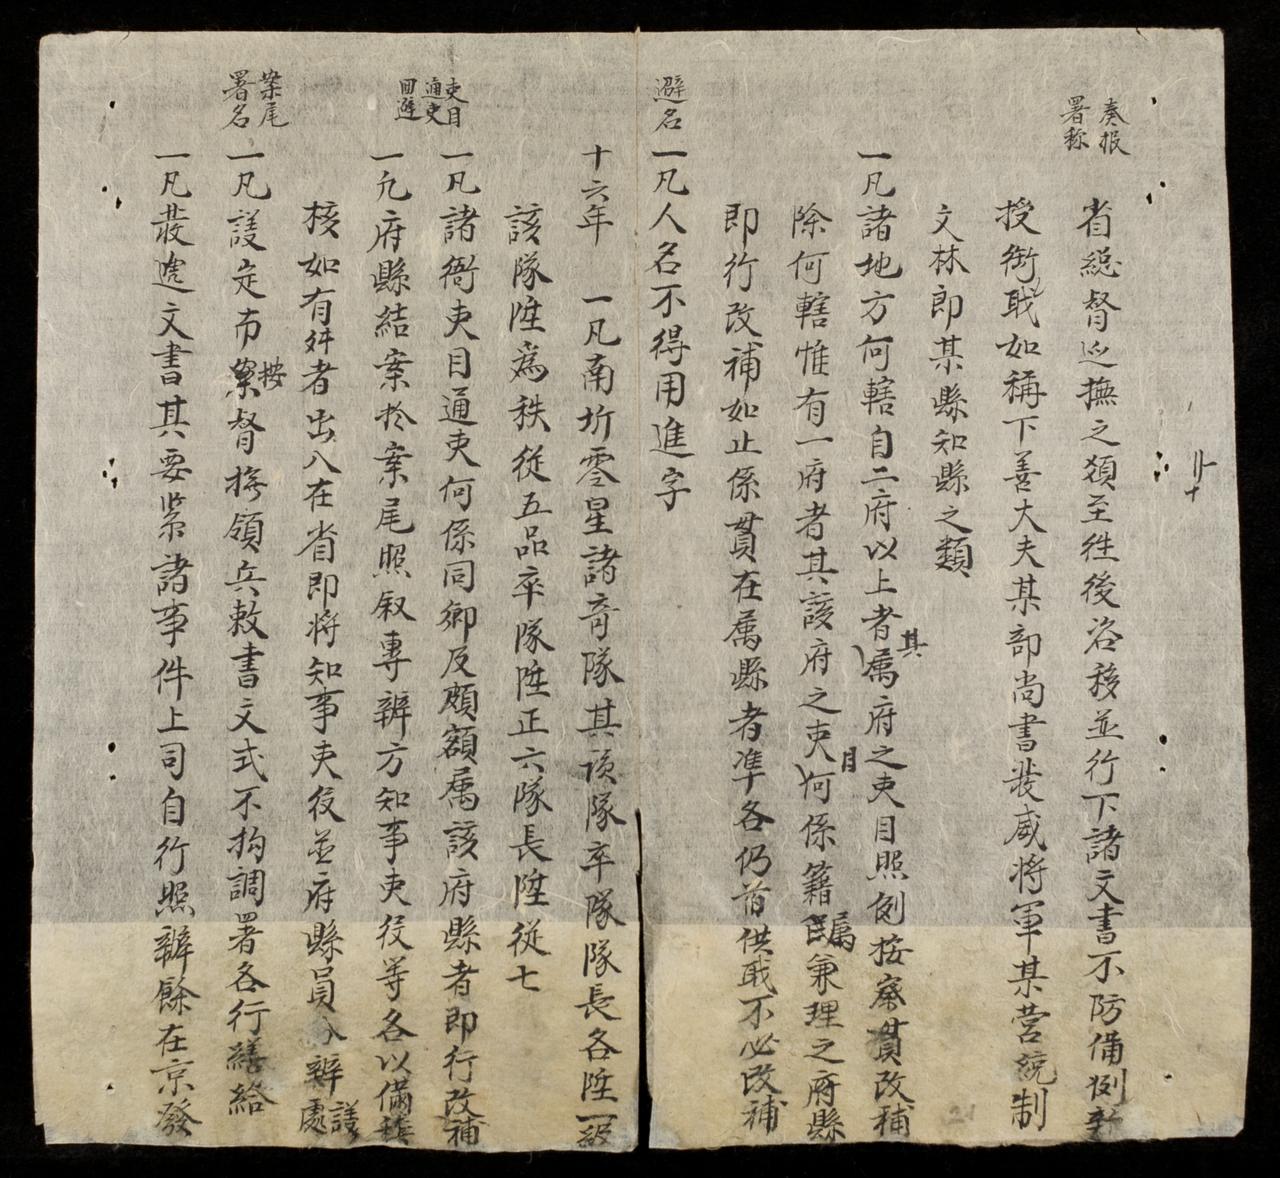 奏报
署称
省総督巡撫之類至徃後咨移並行下諸文書不防備例
授銜職如稱下善大夫某部尚書䒳威将軍某营統制
文林郎某縣知縣之類
一凡諸地方何轄自二府以上者其属府之吏目照例按察貫改補
除何轄惟有一府者其該府之吏目何係籍属兼理之府縣
即行改補如止係貫在属縣者準各仍首供職不必改補
避名
一凡人名不得用進字
十六年 一凡南圻零星諸竒隊其該隊卒隊隊長各陞一級
該隊陞為秩從五品卒隊陞正六隊長陞從七
吏目
通吏
回避
一凡諸衙吏目通吏何係同鄉反頗額属該府縣者即行改補
一凡府縣結案於案尾照叙專辨方知事吏役等各以備
核如有舛者出入在省即将知事吏役並府縣員辨議處
案尾
署名
一凡議定布案按督撫領兵敕書文式不拘調署各行繕給
一凡䒳遞文書其要紧諸事件上司自行照辦餘在京發